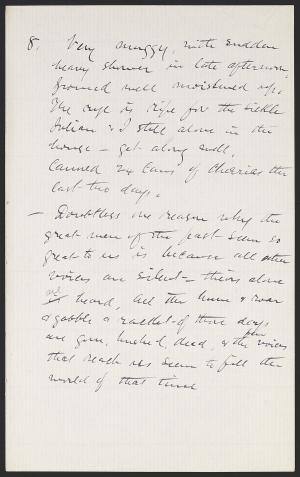 8. Very muggy, with sudden
heavy shower in late afternoon,
Ground well moistened up.
The rye is ripe for the sickle
Julian & I still alone in the
house - get along well.
Canned 24 cans of cherries the
last two days.
- Doubtless one reason why the
great men of the past seem so
great to us is because all other
voices are silent - theirs alone
heard, all the hum & roar
& gabble & racket of those days
are gone, hushed, dead, & the few voices
that reach us seem to fill the
world of that time